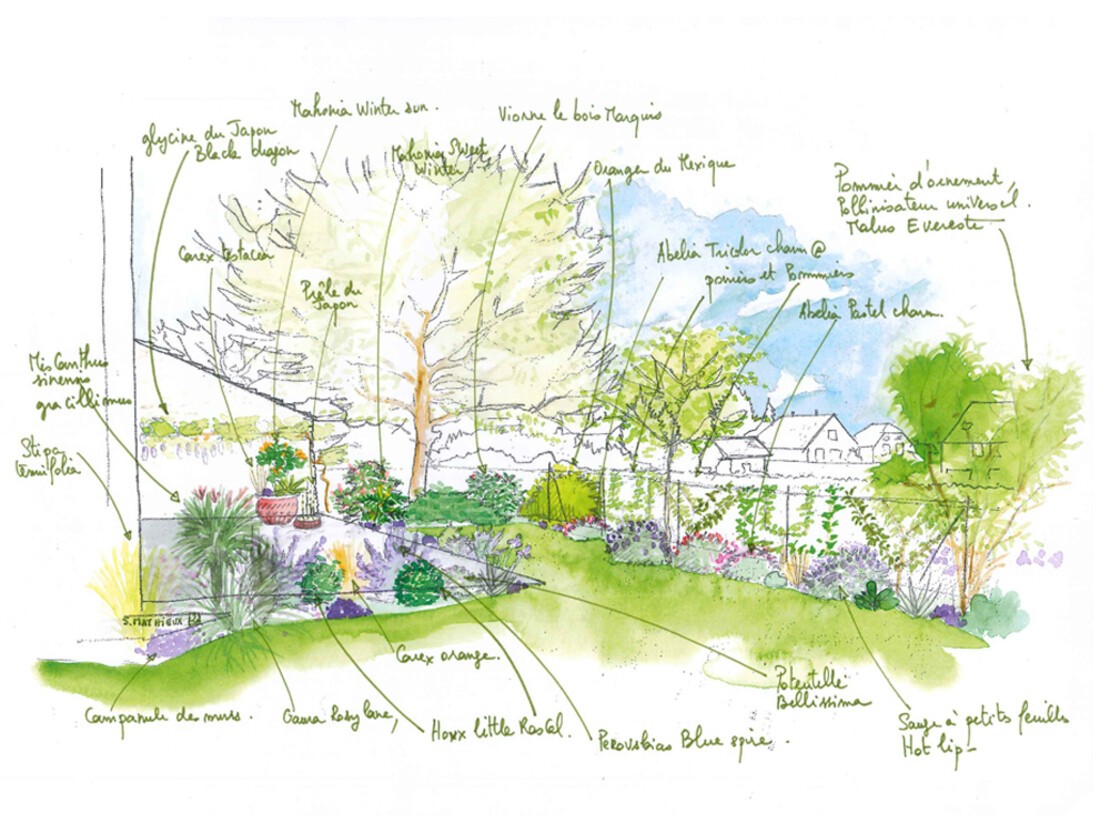 Mahonia Winter sun.
Vionne le bois Marquis
glycine du Japon
Black dragon
Mahonia Sweet
Winter
Oranger du Mexique
Pommier d'ornement,
Pollinisateur universel.
Malus Evereste
Carex testacea
Abelia Tricolor charm @
poiriers et Pommiers
Prêle du
Japon
Abelia Pastel charm.
Miscanthus
sinensis
gracillimus
Stipa
tenuifolia
S. MATHIEUX
Carex orange.
Potentille
Bellissima
Campanule des murs.
Gaura Rosy Lane,
Houx little Rascal.
Perovskias Blue spire.
Sauge à petites feuilles
Hot lip-